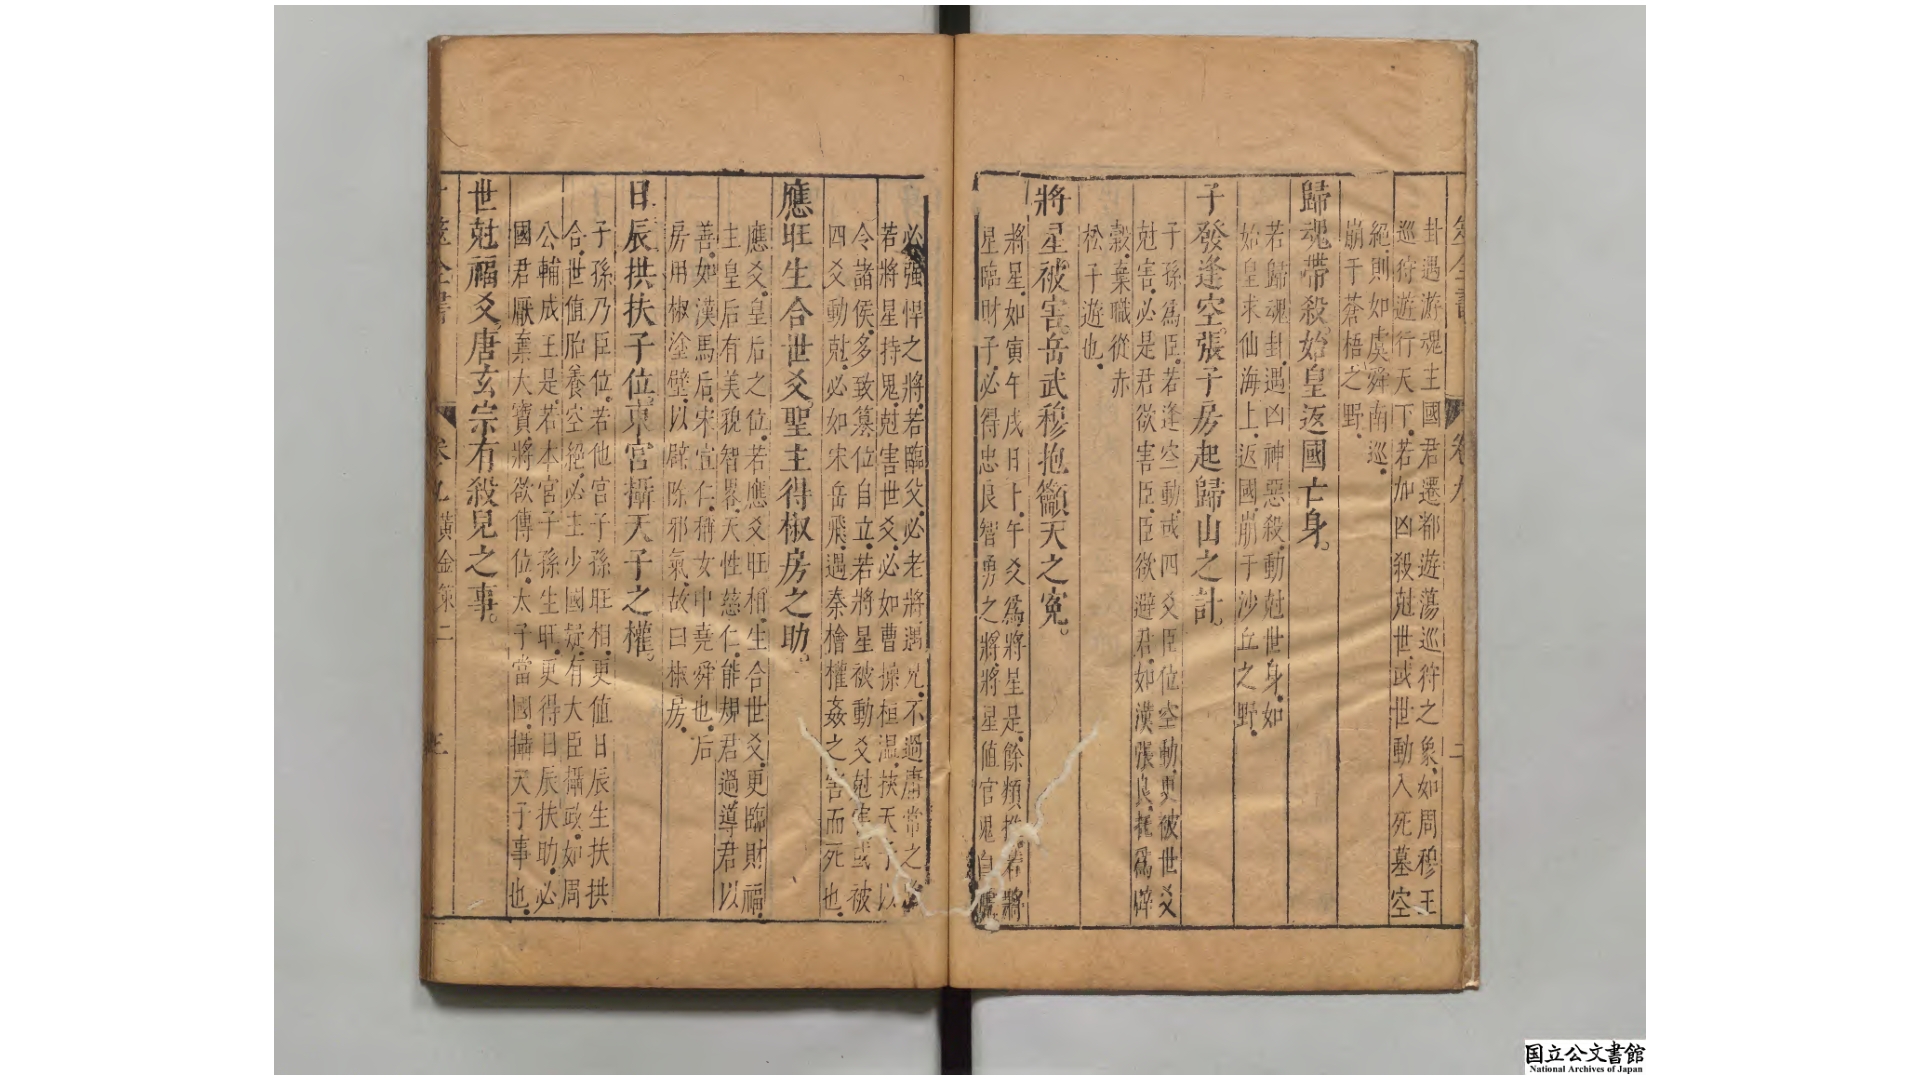 卦遇游魂主國君遷都遊蕩巡狩之象如周穆王
巡狩遊行天下若加凶殺尅世或世動入死墓空
絕則如虞舜南巡
崩于蒼梧之野
歸魂帶殺始皇返國亡身
若歸魂卦遇凶神惡殺動尅世身如
始皇求仙海上返國崩于沙丘之野
子發逢空張子房起歸山之計
子孫為臣若逢空動或四爻臣位空動更被世爻
尅害必是君欲害臣臣欲避君如漢張良托為辟
穀棄職從赤
松子遊也
將星被害岳武穆抱籲天之冤
將星如寅午戌日卜午爻為將星是餘類推若將
星臨財子必得忠良智勇之將將星值官鬼自
必強悍之將若臨父必老將遇兄不過庸常之
若將星持鬼尅害世爻必如曹操桓温挾天子以
令諸侯多致篡位自立若將星被動爻尅害或被
四爻動尅必如宋岳飛遇秦檜權姦之害而死也
應旺生合世爻聖主得椒房之助
應爻皇后之位若應爻旺相生合世爻更臨財福
主皇后有美貌智畧天性慈仁能規君過導君以
善如漢馬后宋宣仁稱女中堯舜也后
房用椒塗壁以辟除邪氣故曰椒房
日辰拱扶子位東宮攝天子之權
子孫乃臣位若他宮子孫旺相更值日辰生扶拱
合世值胎養空絕必主少國疑有大臣攝政如周
公輔成王是若本宮子孫生旺更得日辰扶助必
國君厭棄大寶將欲傳位太子當國攝天子事也
世尅福爻唐玄宗有殺兒之事
卷九 黃金策二